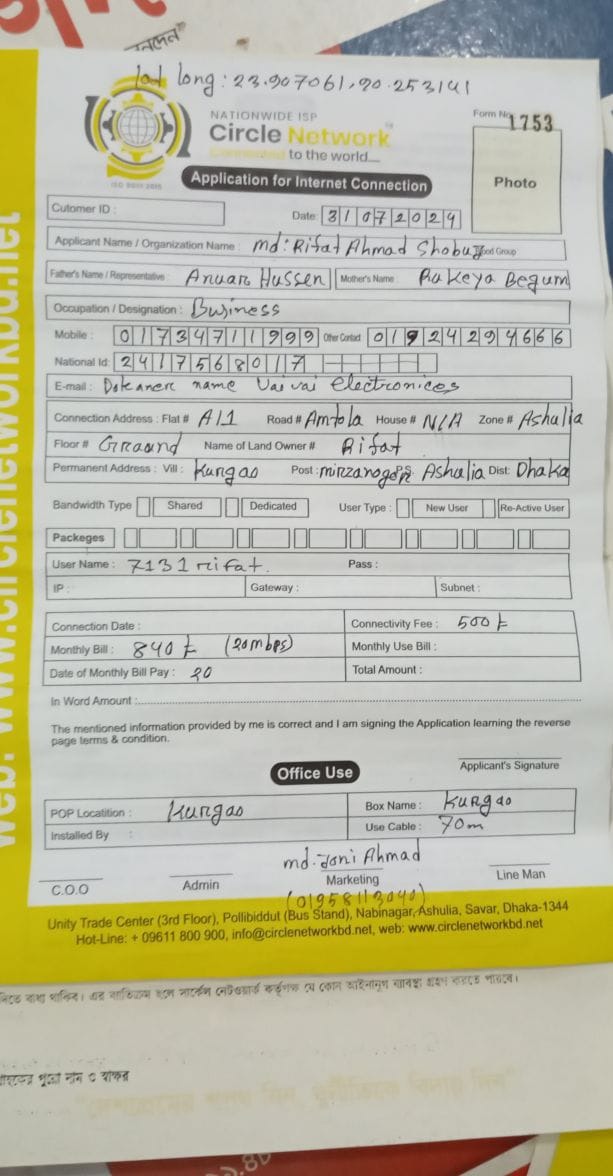 lat long : 23.907061, 90.253141
NATIONWIDE ISP
Circle Network
Connected to the world...
ISO 9001 2015
Form No 1753
Photo
Application for Internet Connection
Cutomer ID :
Date: 31072024
Applicant Name / Organization Name : md: Rifat Ahmad Shobuj
Father's Name / Representative : Anuar Hussen Mother's Name : Rakeya Begum
Occupation / Designation : Business
Mobile : 01734711999 Other Contact 01924294666
National Id: 2417568017
E-mail : Dokaner name Vai vai electronices
Connection Address : Flat # A/1 Road # Amtola House # N/A Zone # Ashulia
Floor # Graound Name of Land Owner # Rifat
Permanent Address : Vill : Kurgao Post : mirzanogor P.S. Ashulia Dist: Dhaka
Bandwidth Type Shared Dedicated User Type : New User Re-Active User
Packeges
User Name : 7131rifat. Pass :
IP : Gateway : Subnet :
Connection Date : Connectivity Fee : 500 t
Monthly Bill : 840 t (20mbps) Monthly Use Bill :
Date of Monthly Bill Pay : 20 Total Amount :
In Word Amount :
The mentioned information provided by me is correct and I am signing the Application learning the reverse
page terms & condition.
Applicant's Signature
Office Use
POP Locatition : Kurgao Box Name : Kurgao
Installed By : Use Cable : 70m
md. Joni Ahmad
C.O.O Admin Marketing Line Man
(01958113040)
Unity Trade Center (3rd Floor), Pollibiddut (Bus Stand), Nabinagar, Ashulia, Savar, Dhaka-1344
Hot-Line: + 09611 800 900, info@circlenetworkbd.net, web: www.circlenetworkbd.net
web: www.circlenetworkbd.net